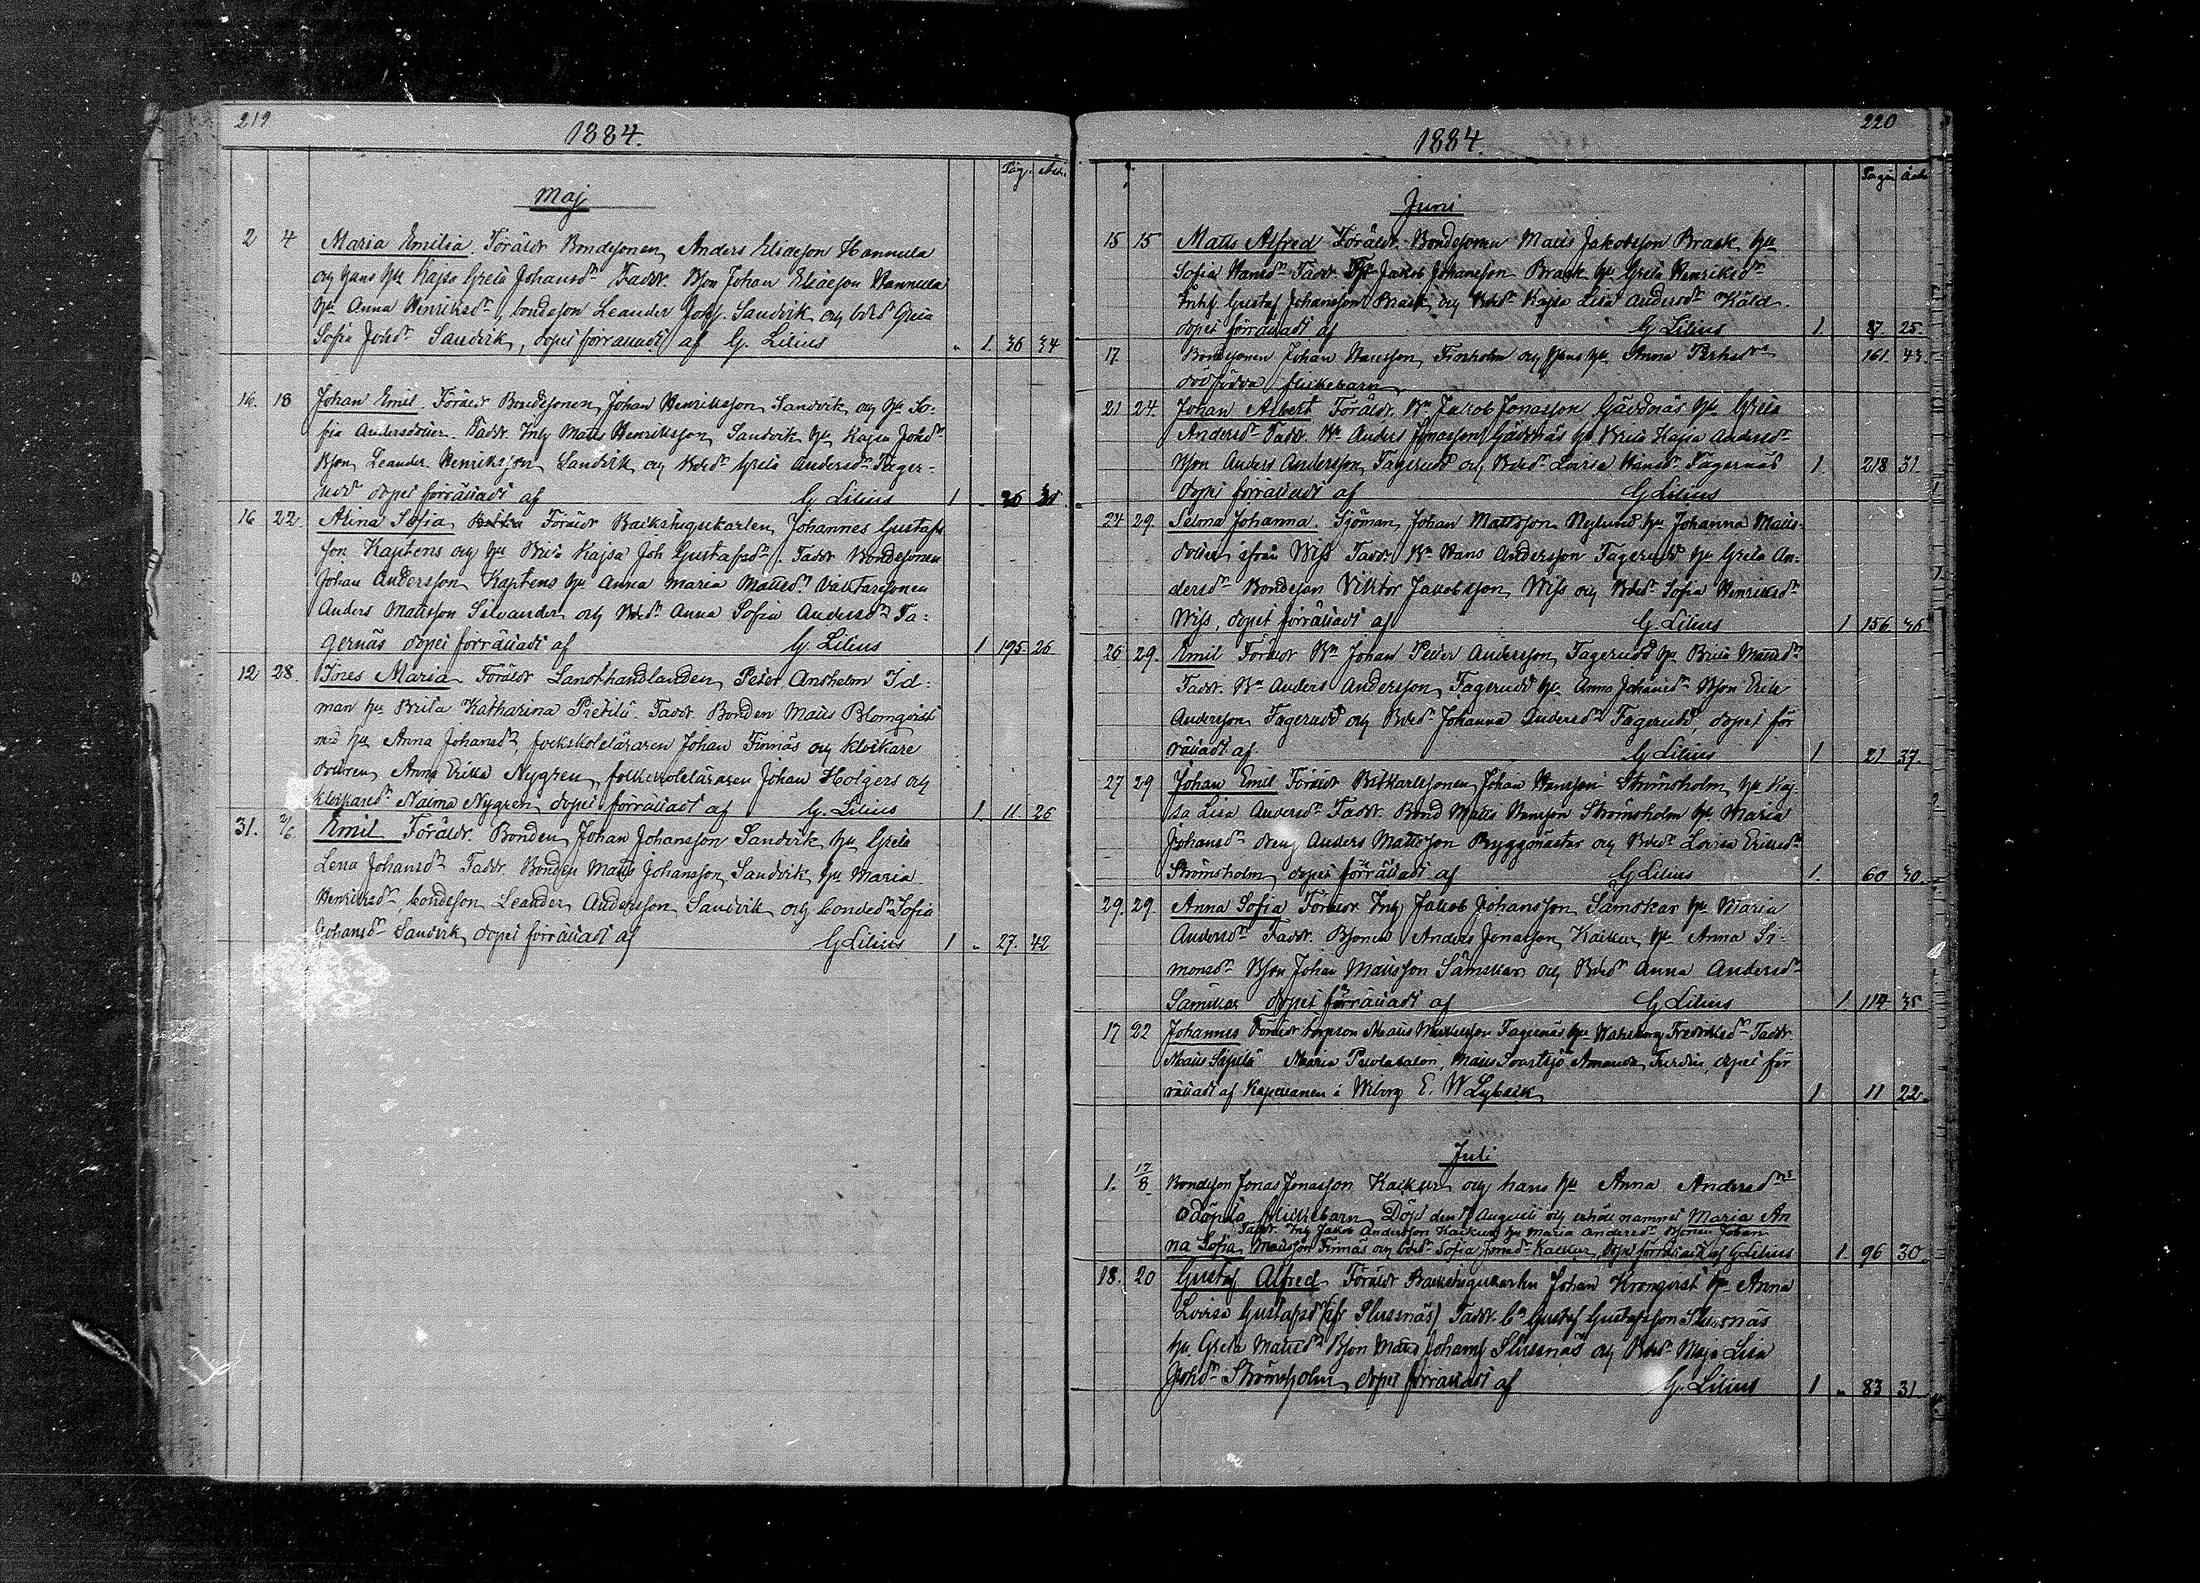 219
1884.
Pag. Ald.
Maj
2 4 Maria Emilia. Föräldr Bondesonen Anders Eliæson Hannula
och hans hu Kajsa Greta Johansdr. Faddr. Bson Johan Eliæson Hannula
hu Anna Henriksdr, bondeson Leander Johs. Sandvik och bdr Greta
Sofia Johdr Sandvik, dopet förrättadt af G. Lilius " 1 36 34
16. 18 Johan Emil. Föräldr Bondesonen Johan Henriksson Sandvik och hu So-
fia Andersdotter. Faddr. Inhy Matts Henriksson Sandvik hu Kajsa Johdr
Bson Leander Henriksson Sandvik och Bdr Greta Andersdr Tager-
udd dopet förrättadt af G Lilius 1 " 26 31
16 22. Alina Sofia Föräldr Backstugukarlen Johannes Gustafs
son Kaptens och hu Brita Kajsa Joh Gustafsdr. Faddr Bondesonen
Johan Andersson Kaptens hu Anna Maria Mattsdr.
Anders Mattsson Silvander och Bdr Anna Sofia Andersdr Ta-
gernäs dopet förrättadt af G. Lilius 1 195. 26
12 28. Ines Maria Föräldr Lanthandlanden Peter Anshelm Id-
man hu Brita Katharina Pietilä. Faddr. Bonden Matts Blomqvist
med hu Anna Johansdr, folkskoleläraren Johan Finnäs och klockare
dottren Anna Erika Nygren, folkskoleläraren Johan Holgers och
klockaredr Naima Nygren dopet förrättadt af G. Lilius 1. 11. 26
31. 2/6 Emil Föräldr. Bonden Johan Johansson Sandvik hu Greta
Lena Johansdr Faddr. Bonden Matts Johansson Sandvik hu Maria
Henriksdr, bondeson Leander Andersson Sandvik och bondedr Sofia
Johansdr Sandvik dopet förrättadt af G Lilius 1 " 27. 42
220
1884.
Pagin
Juni
15 15 Matts Alfred Föräldr. Bondesonen Matts Jakobsson Brask hu
Sofia Hansdr Faddr. Jakob Johansson Brask hu Greta Henriksdr
Inhs Gustaf Johansson Brask och Bdr Kajsa Lisa Andersdr Käld
dopet förrättadt af G Lilius 1. 87. 25.
17. Bondesonen Johan Hansson Finholm och hans hu Anna 161. 43.
dödfödda flickebarn
21 24. Johan Albert Föräldr. Bn Jakob Jonasson Gäddnäs hu Greta
Andersdr Faddr. Bn Anders Jonasson Gäddnäs hu Brita Kajsa Andersdr
Bson Anders Andersson Tagerudd och Bdr Lovisa Hansdr Tagernäs 1. 218 31.
dopet förrättadt af G Lilius
24 29. Selma Johanna. Sjöman Johan Mattsson Nylund hu Johanna Matts-
dotter ifrån Wiss Faddr. Bn Hans Andersson Tagerudd hu Greta An-
dersdr Bondeson Viktor Jakobsson Wiss och Bdr Sofia Henriksdr
Wiss, dopet förrättadt af G. Lilius 1 156 36.
26 29. Emil Föräldr Bn Johan Peter Andersson Tagerudd hu Brita Mattsdr
Faddr. Bn Anders Andersson Tagerudd hu Anna Johansdr Bson Erik
Andersson Tagerudd och Bdr Johanna Andersdr Tagerudd, dopet för
rättadt af G Lilius 1 21 37.
27 29 Johan Emil Föräldr Johan Hansson Strömsholm hu Kaj-
sa Lisa Andersdr Faddr. Bond Matts Hansson Strömsholm hu Maria
Johansdr dreng Anders Mattsson Byggmästar och Bdr Lovisa Eriksdr
Strömsholm dopet förrättadt af G Lilius 1. 60 30.
29. 29. Anna Sofia Föräldr Inhy Jakob Johansson Sämskar hu Maria
Andersdr Faddr. Bsonen Anders Jonasson Kaikur hu Anna Si-
monsdr Bson Johan Mattsson Sämskar och Bdr Anna Andersdr
Sämskar dopet förrättadt af G Lilius 1. 114 35
17 22 Johannes Föräldr Matts Tagernäs hu Walborg Fredriksdr Faddr.
Matts Sipilä Maria Matts Amanda dopet för
rättadt af Kapellanen i Wiborg E. W Lybeck 1 11 22.
Juli
1. 17/8 Bondeson Jonas Jonasson Kaikur och hans hu Anna Andersdrs
odöpta flickebarn Döpt den 17 Augusti och erhöll namnet Maria An
Faddr Inhy Jakob Andersson Kaikur hu Maria Andersdr Bsonen Johan
na Sofia Mattsson Finnäs och bdr Sofia Jonasdr Kaikur, dopet förrättadt af G Lilius 1. 96 30.
18. 20 Gustaf Alfred Föräldr Backstugukarlen Johan Kronqvist hu Anna
Lovisa Gustafsdr (ifr Slussnäs) Faddr. Bn Gustaf Gustafsson Slussnäs
hu Greta Mattsdr Bson Matts Johans Slussnäs och Bdr Maja Lisa
Johdr Strömsholm dopet förrättadt af G. Lilius 1 " 83 31.